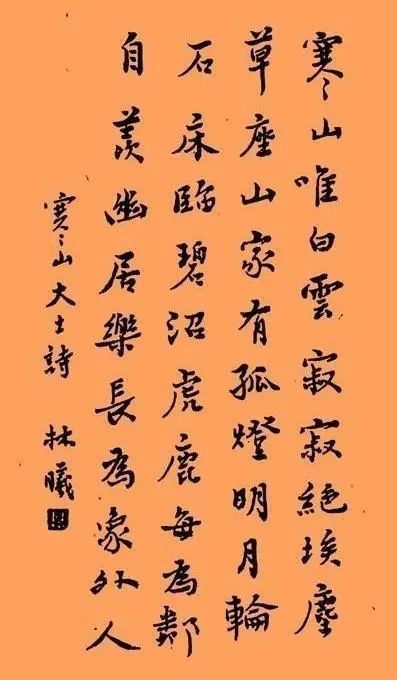 寒山唯白雲寂寂絕埃塵
草座山家有孤燈明月輪
石床臨碧沼虎鹿每為鄰
自羨幽居樂長為象外人
寒山大士詩 林曦